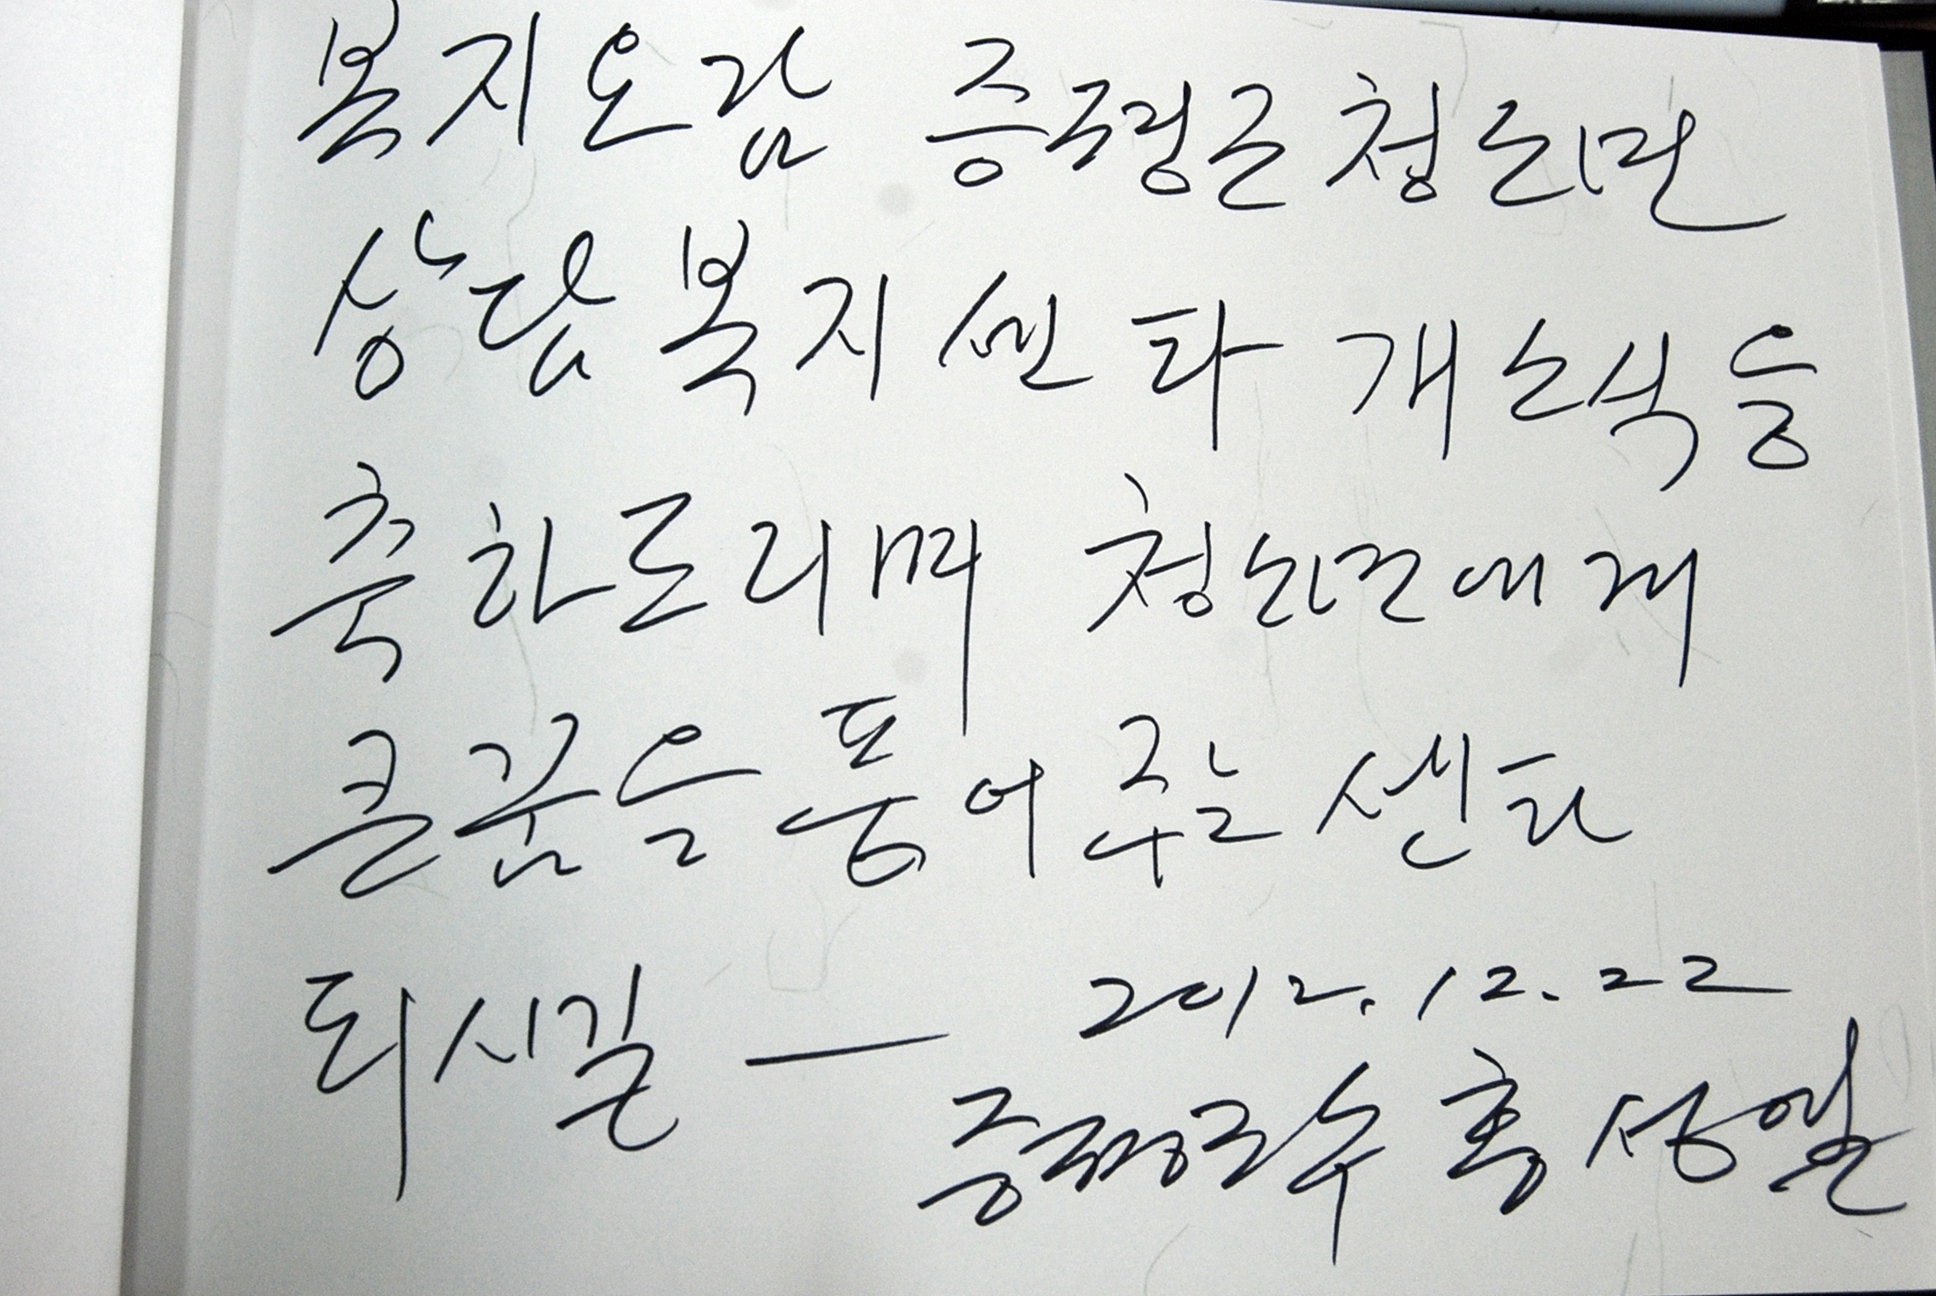 복지요람 증평군청소년
상담복지센타 개소식을
축하드리며 청소년에게
큰 꿈을 품어 주는 센타
되시길 —
2012. 12. 22
증평군수 홍성열